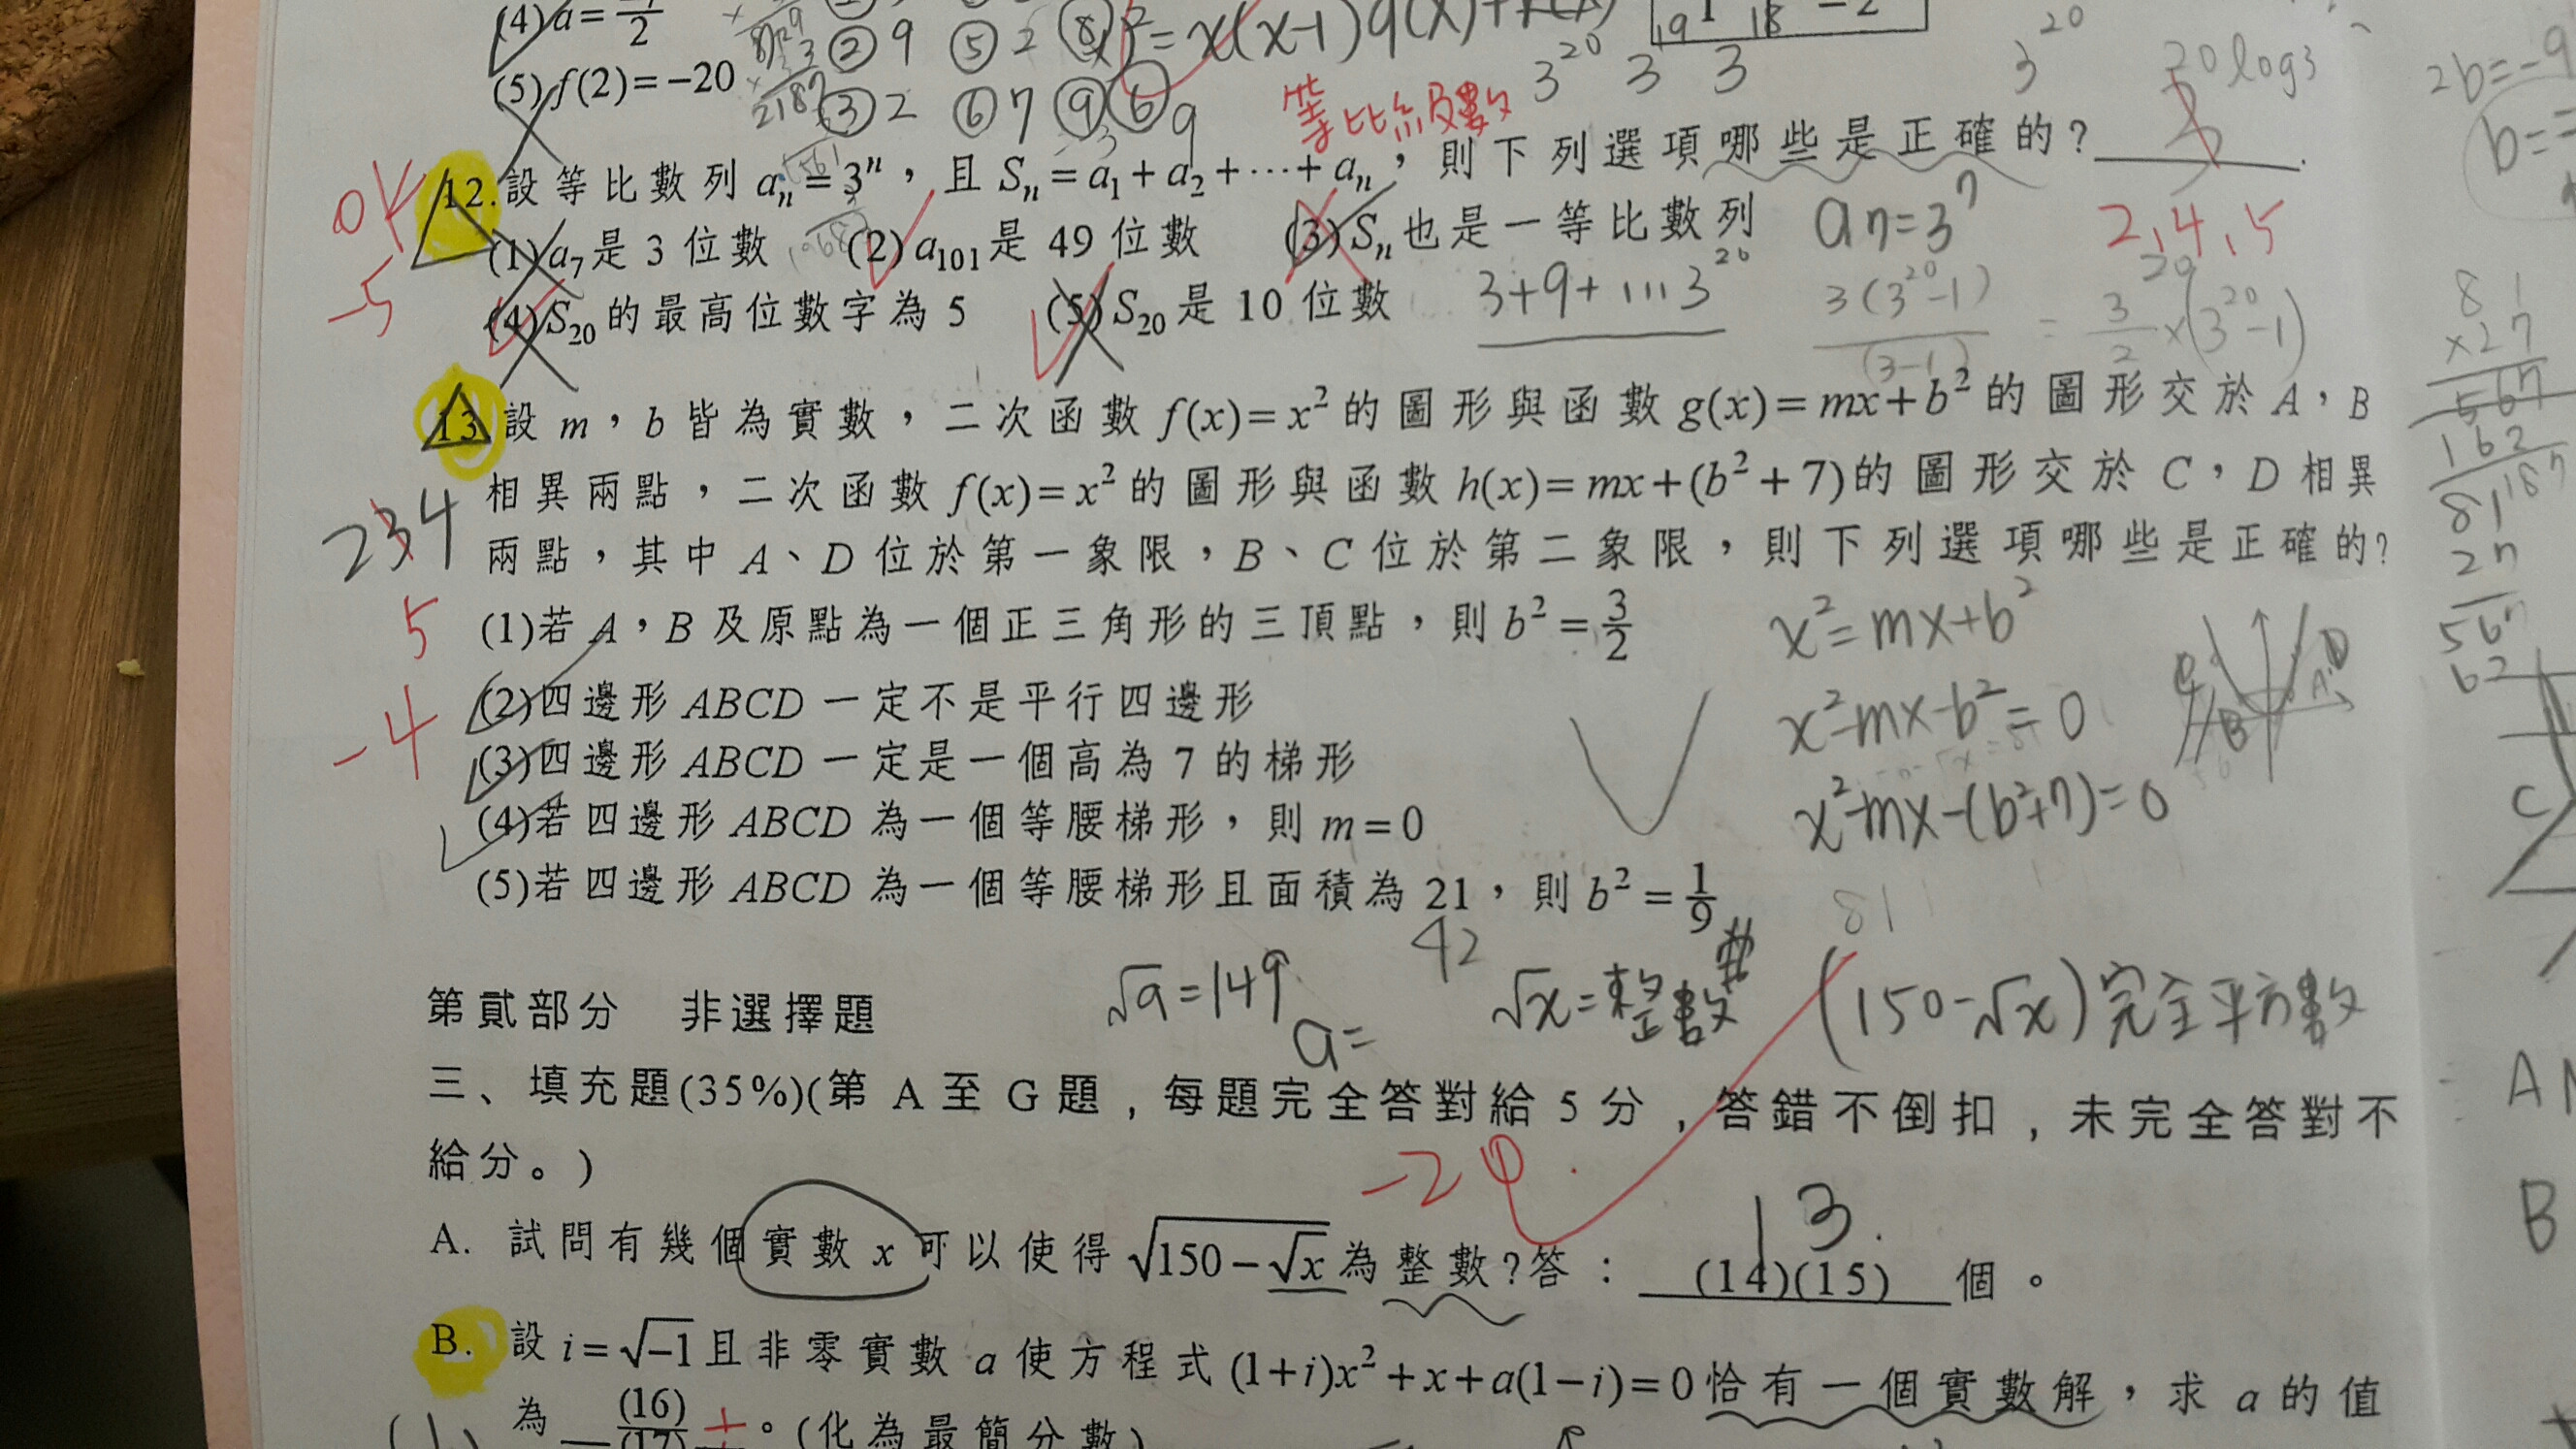 (4) a =
2
(5) f(2) = −20
② 9 ⑤ 2 ⑧
= x(x−1)q(x)+
③ 2 ⑥ 7 ⑨
2187
3^20 3 3
3^20
20 log3
2b=-9
b=
等比級數
OK
12. 設等比數列 a_n = 3^n，且 S_n = a_1 + a_2 + ⋯ + a_n，則下列選項哪些是正確的？
2,4,5
(1) a_7 是 3 位數 (2) a_101 是 49 位數 (3) S_n 也是一等比數列
an=3^n
-5
(4) S_20 的最高位數字為 5 (5) S_20 是 10 位數
3+9+...3^20
3(3^20-1)
(3-1)
= 3/2 ×(3^20-1)
81
×27
567
162
2187
13. 設 m，b 皆為實數，二次函數 f(x) = x² 的圖形與函數 g(x) = mx + b² 的圖形交於 A，B
相異兩點，二次函數 f(x) = x² 的圖形與函數 h(x) = mx + (b² + 7) 的圖形交於 C，D 相異
兩點，其中 A、D 位於第一象限，B、C 位於第二象限，則下列選項哪些是正確的？
234
5
-4
(1)若 A，B 及原點為一個正三角形的三頂點，則 b² = 3/2
(2)四邊形 ABCD 一定不是平行四邊形
(3)四邊形 ABCD 一定是一個高為 7 的梯形
(4)若四邊形 ABCD 為一個等腰梯形，則 m = 0
(5)若四邊形 ABCD 為一個等腰梯形且面積為 21，則 b² = 1/9
x²=mx+b²
x²-mx-b²=0
x²-mx-(b²+7)=0
C
D
A
B
42
81
第貳部分 非選擇題
√a=149
a=
√x=整數
(150-√x)完全平方數
三、填充題(35%)(第 A 至 G 題，每題完全答對給 5 分，答錯不倒扣，未完全答對不
給分。)
-24
13.
A. 試問有幾個實數 x 可以使得 √(150−√x) 為整數？答： (14)(15) 個。
B. 設 i = √−1 且非零實數 a 使方程式 (1+i)x² + x + a(1−i) = 0 恰有一個實數解，求 a 的值
為 (16)/(17) 。(化為最簡分數)
C
B